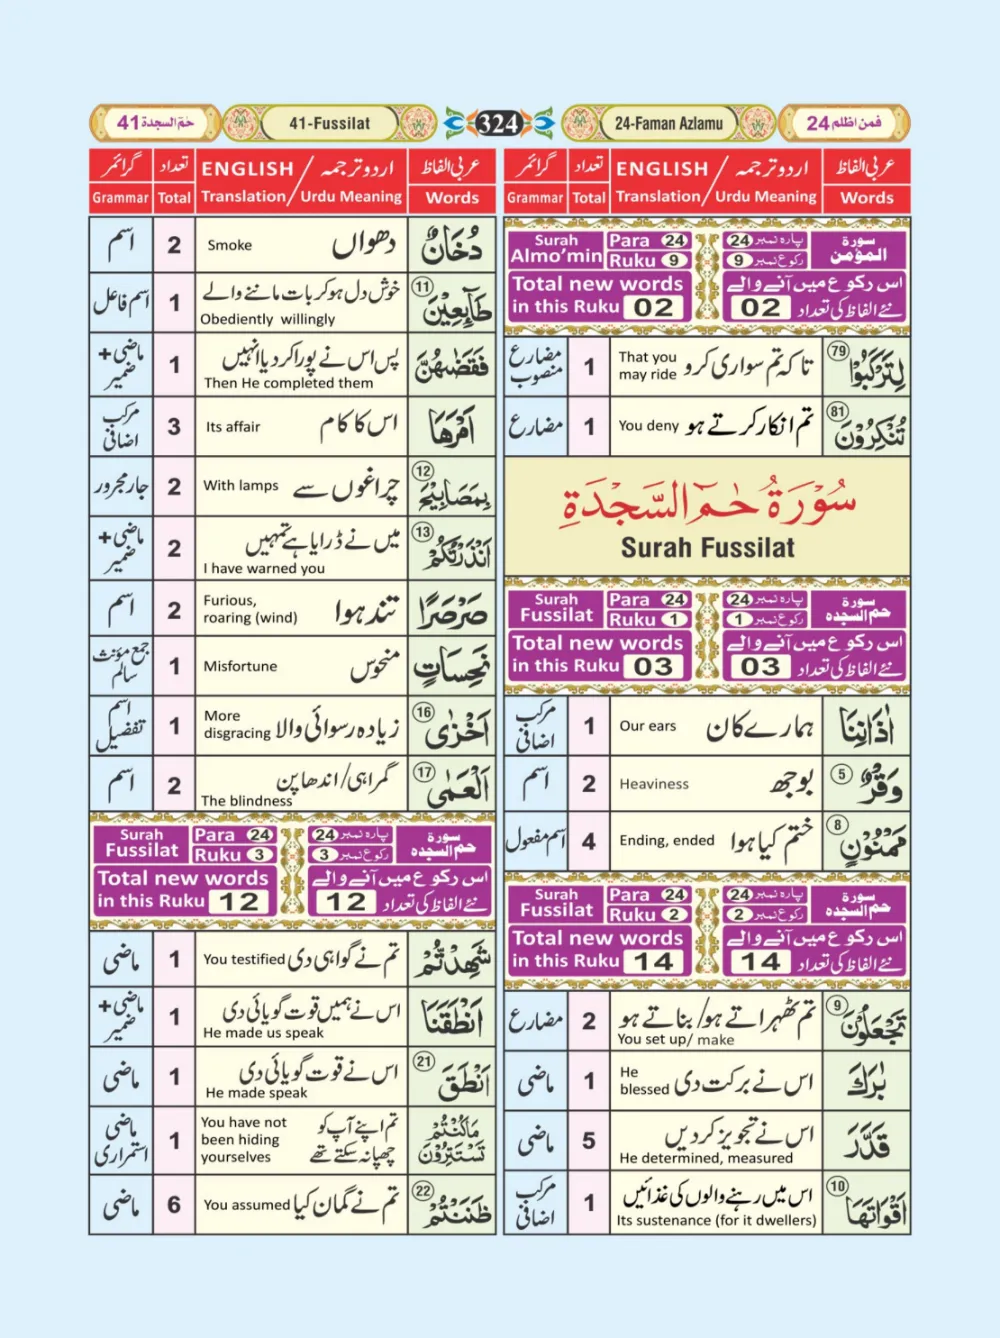 41 حٰمٓ السجدة
41-Fussilat
324
24-Faman Azlamu
فمن اظلم 24
عربی الفاظ اردو ترجمہ / ENGLISH تعداد گرائمر
Words Urdu Meaning / Translation Total Grammar
سورة المؤمن
پارہ نمبر 24
رکوع نمبر 9
Surah Almo’min
Para 24
Ruku 9
اس رکوع میں آنے والے
نئے الفاظ کی تعداد 02
Total new words
in this Ruku 02
لِتَرْكَبُوْا (79) تاکہ تم سواری کرو That you may ride 1 مضارع منصوب
تُنْكِرُوْنَ (81) تم انکار کرتے ہو You deny 1 مضارع
سُوْرَةُ حٰمٓ السَّجْدَةِ
Surah Fussilat
سورة حم السجدہ
پارہ نمبر 24
رکوع نمبر 1
Surah Fussilat
Para 24
Ruku 1
اس رکوع میں آنے والے
نئے الفاظ کی تعداد 03
Total new words
in this Ruku 03
اٰذَانِنَا ہمارے کان Our ears 1 مرکب اضافی
وَقْرٌ (5) بوجھ Heaviness 2 اسم
مَمْنُوْنٍ (8) ختم کیا ہوا Ending, ended 4 اسم مفعول
سورة حم السجدہ
پارہ نمبر 24
رکوع نمبر 2
Surah Fussilat
Para 24
Ruku 2
اس رکوع میں آنے والے
نئے الفاظ کی تعداد 14
Total new words
in this Ruku 14
تَجْعَلُوْنَ (9) تم ٹھہراتے ہو/بناتے ہو You set up/ make 2 مضارع
بٰرَكَ اس نے برکت دی He blessed 1 ماضی
قَدَّرَ اس نے تجویز کردیں He determined, measured 5 ماضی
اَقْوَاتَهَا (10) اس میں رہنے والوں کی غذائیں Its sustenance (for it dwellers) 1 مرکب اضافی
عربی الفاظ اردو ترجمہ / ENGLISH تعداد گرائمر
Words Urdu Meaning / Translation Total Grammar
دُخَانٌ دھواں Smoke 2 اسم
طَآىِٕعِيْنَ (11) خوش دل ہوکر بات ماننے والے Obediently willingly 1 اسم فاعل
فَقَضٰىهُنَّ پس اس نے پورا کر دیا انہیں Then He completed them 1 ماضی + ضمیر
اَمْرَهَا اس کا کام Its affair 3 مرکب اضافی
بِمَصَابِيْحَ (12) چراغوں سے With lamps 2 جار مجرور
اَنْذَرْتُكُمْ (13) میں نے ڈرایا ہے تمہیں I have warned you 2 ماضی + ضمیر
صَرْصَرًا تند ہوا Furious, roaring (wind) 2 اسم
نَحِسَاتٍ منحوس Misfortune 1 جمع مؤنث سالم
اَخْزٰى (16) زیادہ رسوائی والا More disgracing 1 اسم تفضیل
الْعَمٰى (17) گمراہی/اندھا پن The blindness 2 اسم
سورة حم السجدہ
پارہ نمبر 24
رکوع نمبر 3
Surah Fussilat
Para 24
Ruku 3
اس رکوع میں آنے والے
نئے الفاظ کی تعداد 12
Total new words
in this Ruku 12
شَهِدْتُّمْ تم نے گواہی دی You testified 1 ماضی
اَنْطَقَنَا اس نے ہمیں قوت گویائی دی He made us speak 1 ماضی + ضمیر
اَنْطَقَ (21) اس نے قوت گویائی دی He made speak 1 ماضی
مَا كُنْتُمْ تَسْتَتِرُوْنَ تم اپنے آپ کو چھپا نہ سکتے تھے You have not been hiding yourselves 1 ماضی استمراری
ظَنَنْتُمْ (22) تم نے گمان کیا You assumed 6 ماضی